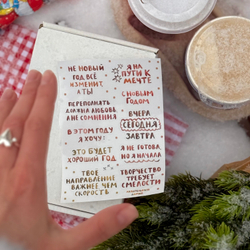 НЕ НОВЫЙ
ГОД ВСЁ
ИЗМЕНИТ,
А ТЫ!
ПЕРЕПОЛНЯТЬ
ДОЛЖНА ЛЮБОВЬ
А НЕ СОМНЕНИЯ
В ЭТОМ ГОДУ
Я ХОЧУ:
ЭТО БУДЕТ
ХОРОШИЙ ГОД
ТВОЁ
НАПРАВЛЕНИЕ
ВАЖНЕЕ ЧЕМ
СКОРОСТЬ
Я НА
ПУТИ К
МЕЧТЕ
С НОВЫМ
ГОДОМ
ВЧЕРА
СЕГОДНЯ
ЗАВТРА
Я НЕ ГОТОВА,
НО Я НАЧАЛА
ТВОРЧЕСТВО
ТРЕБУЕТ
СМЕЛОСТИ